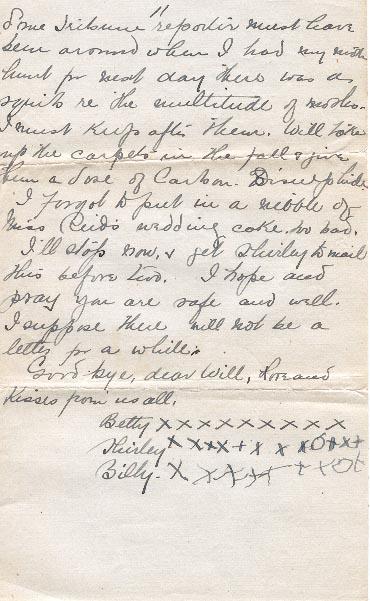 11
Some Tribune reporter must have
been around when I had my moth
hunt for next day there was a
squib re the multitude of moths.
I must keep after them. Will take
up the carpets in the fall & give
them a dose of Carbon Disulphide
I forgot to put in a nibble of
Miss Reid's wedding cake. So bad.
I'll stop now, & get Shirley to mail
this before two. I hope and
pray you are safe and well.
I suppose there will not be a
letter for a while.
Good-bye, dear Will, Love and
kisses from us all.
Betty x x x x x x x x x x
Shirley x x x x + x x x O x x +
Billy. x x x x x + x O t